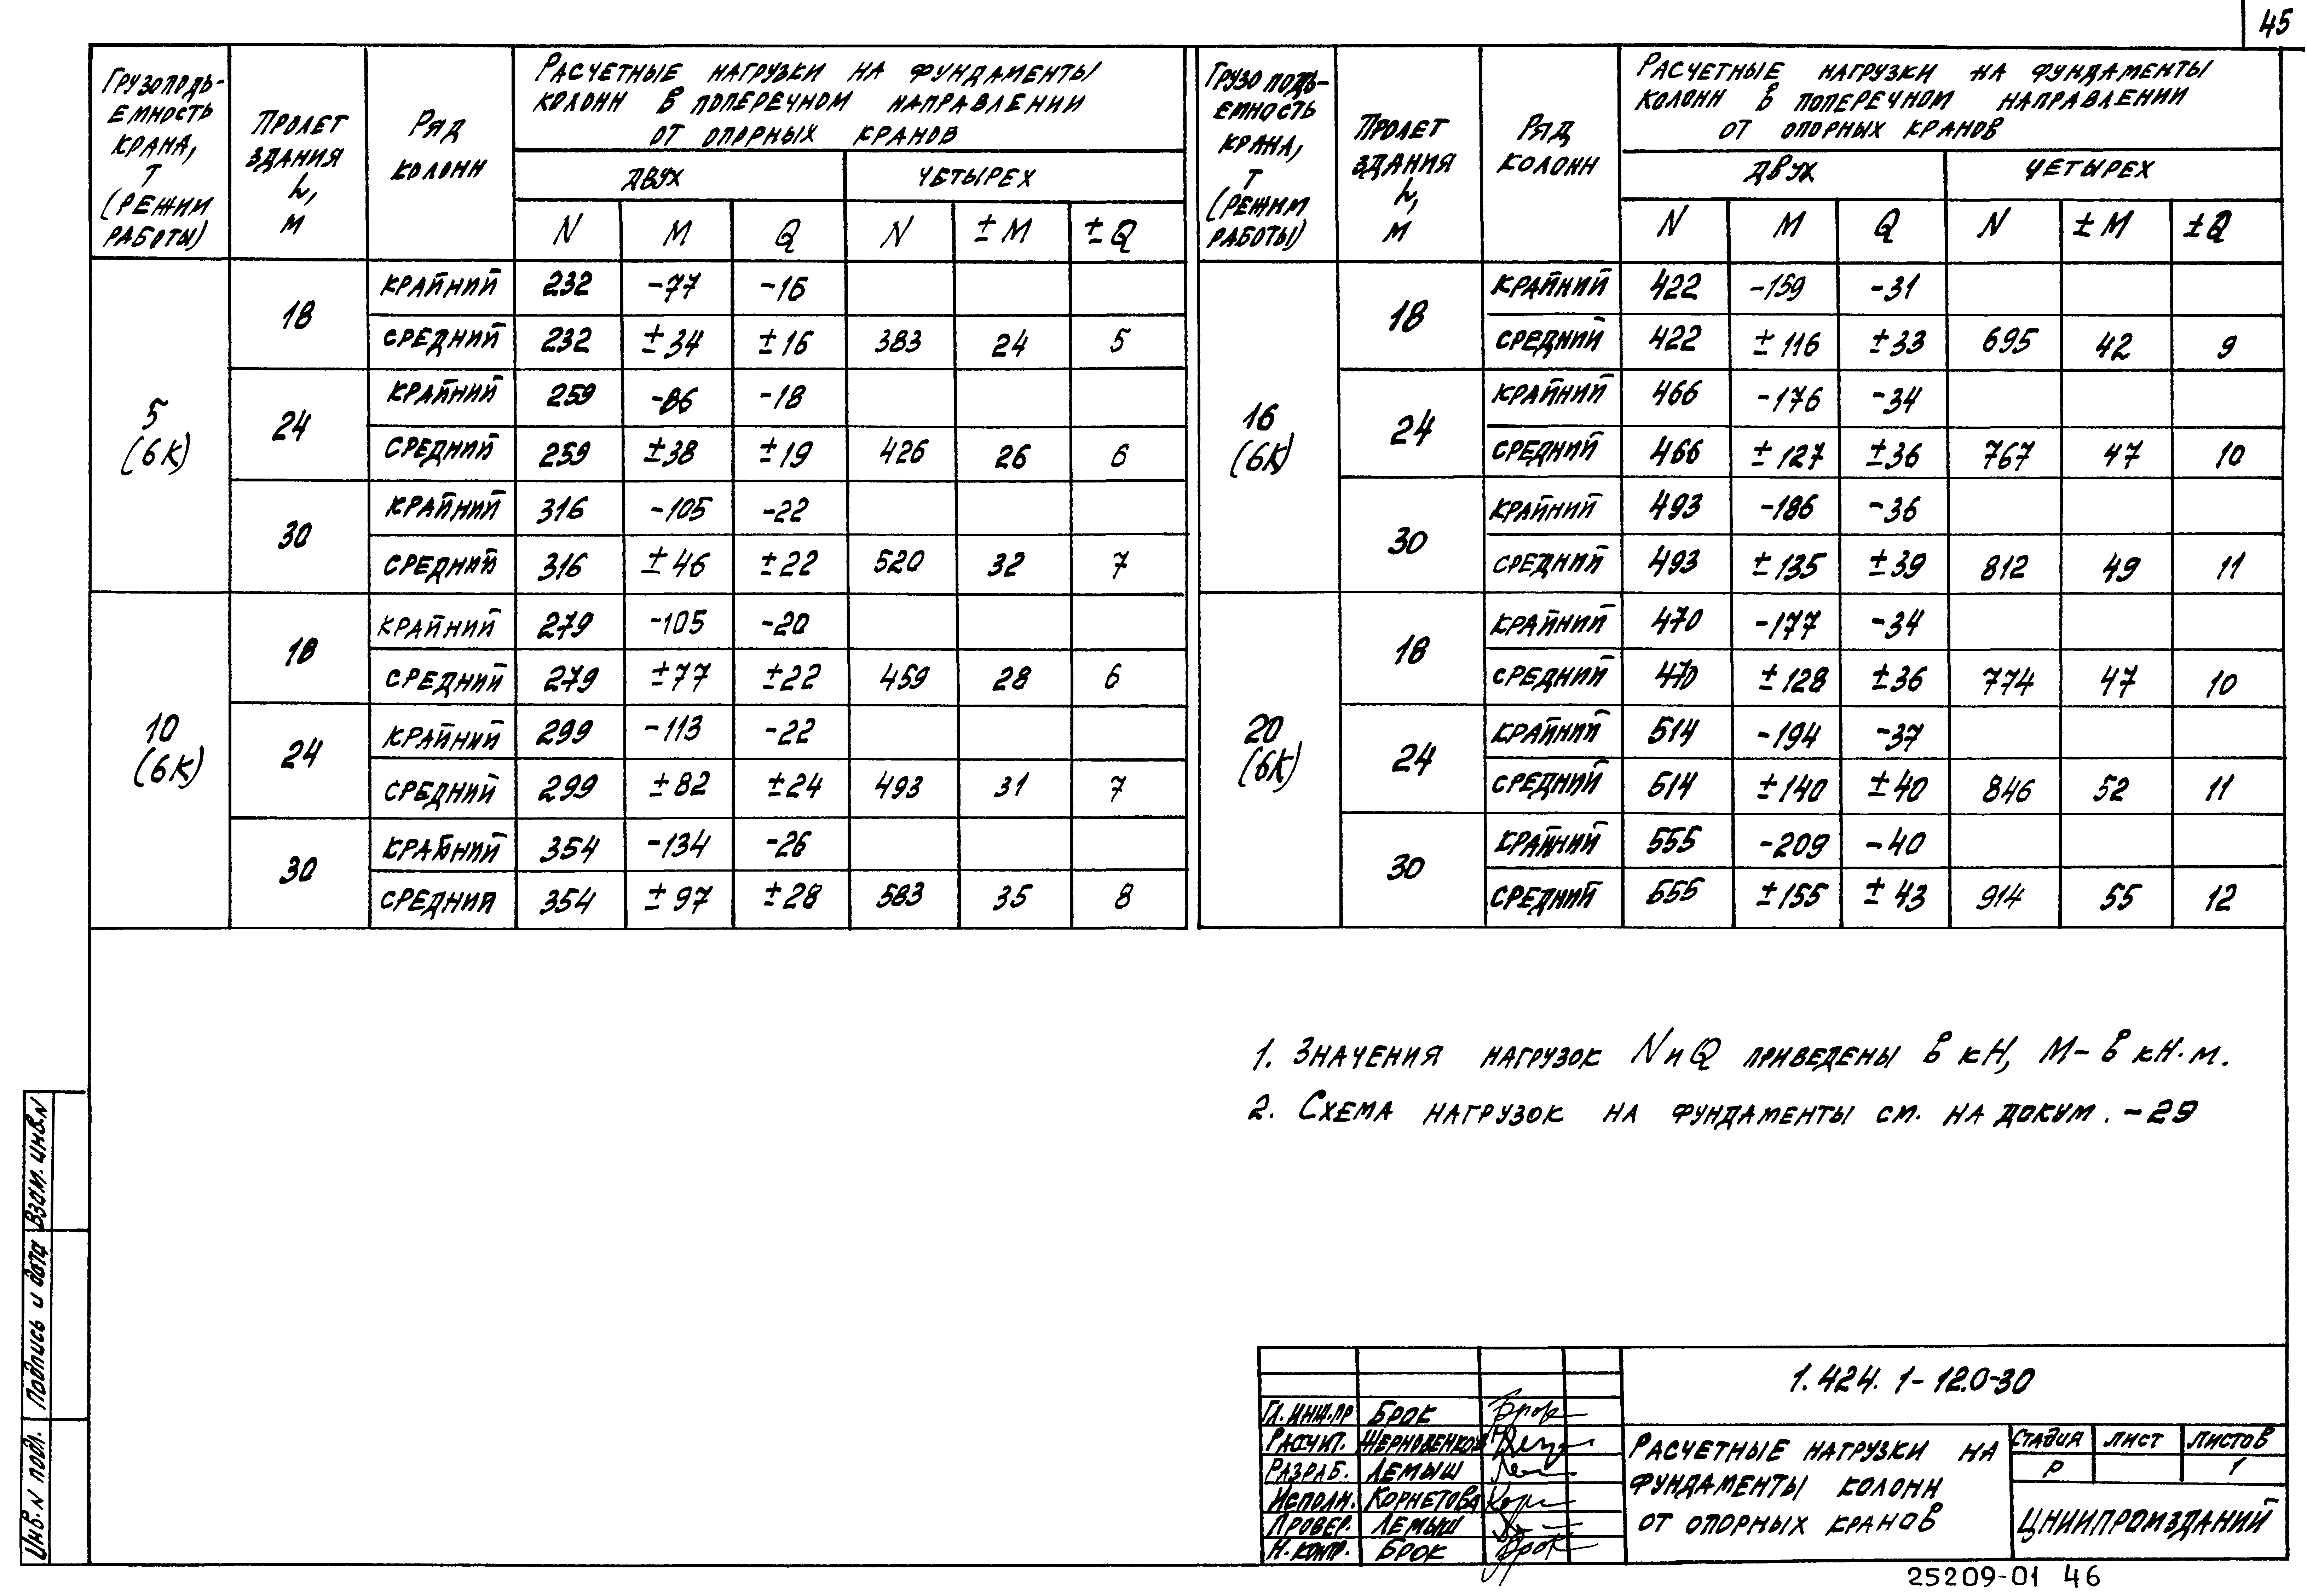 45
Грузоподъ-
емность
крана,
т
(режим
работы)
Пролет
здания
L,
м
Ряд
колонн
Расчетные нагрузки на фундаменты
колонн в поперечном направлении
от опорных кранов
двух четырех
N M Q N ±M ±Q
5
(6К)
18
крайний 232 -77 -16
средний 232 ±34 ±16 383 24 5
24
крайний 259 -86 -18
средний 259 ±38 ±19 426 26 6
30
крайний 316 -105 -22
средний 316 ±46 ±22 520 32 7
10
(6К)
18
крайний 279 -105 -20
средний 279 ±77 ±22 459 28 6
24
крайний 299 -113 -22
средний 299 ±82 ±24 493 31 7
30
крайний 354 -134 -26
средний 354 ±97 ±28 583 35 8
Грузоподъ-
емность
крана,
т
(режим
работы)
Пролет
здания
L,
м
Ряд
колонн
Расчетные нагрузки на фундаменты
колонн в поперечном направлении
от опорных кранов
двух четырех
N M Q N ±M ±Q
16
(6К)
18
крайний 422 -159 -31
средний 422 ±116 ±33 695 42 9
24
крайний 466 -176 -34
средний 466 ±127 ±36 767 47 10
30
крайний 493 -186 -36
средний 493 ±135 ±39 812 49 11
20
(6К)
18
крайний 470 -177 -34
средний 470 ±128 ±36 774 47 10
24
крайний 514 -194 -37
средний 514 ±140 ±40 846 52 11
30
крайний 555 -209 -40
средний 555 ±155 ±43 914 55 12
1. Значения нагрузок N и Q приведены в кН, М- в кН·м.
2. Схема нагрузок на фундаменты см. на докум. -29
Взам. инв. N
Подпись и дата
Инв. N подл.
Гл. инж. пр Брок
Рассчит.
Разраб. Лемыш
Исполн. Корнетова
Провер. Лемыш
Н. контр. Брок
1.424.1-12.0-30
Расчетные нагрузки на
фундаменты колонн
от опорных кранов
Стадия лист листов
Р 1
ЦНИИПРОМЗДАНИЙ
25209-01 46